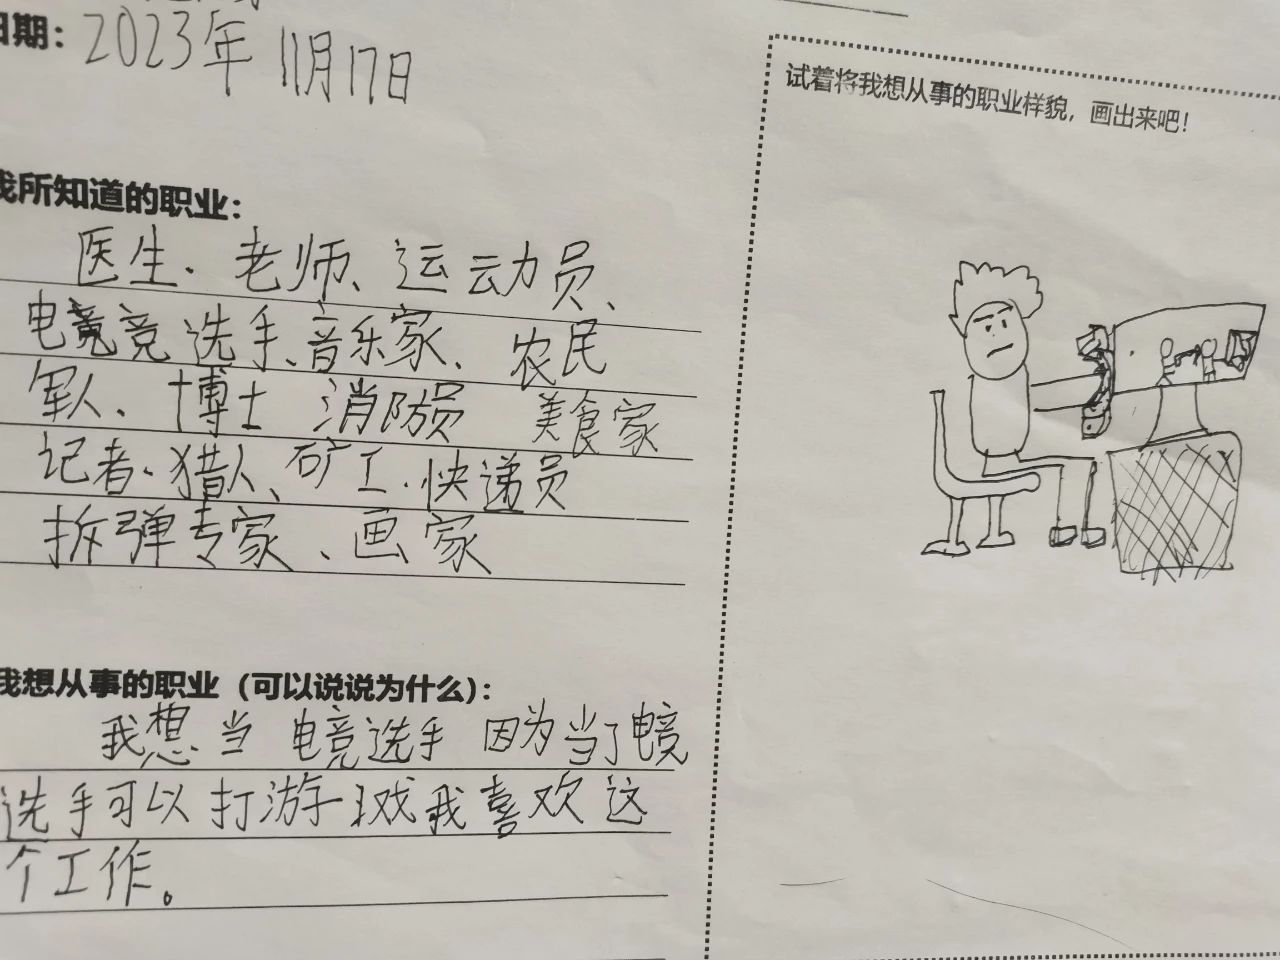 日期：2023年11月17日
试着将我想从事的职业样貌，画出来吧！
我所知道的职业：
医生、老师、运动员、
电竞选手、音乐家、农民
军人、博士 消防员 美食家
记者、猎人、矿工、快递员
拆弹专家、画家
我想从事的职业（可以说说为什么）：
我想当电竞选手 因为当了电竞
选手可以打游戏我喜欢这
个工作。